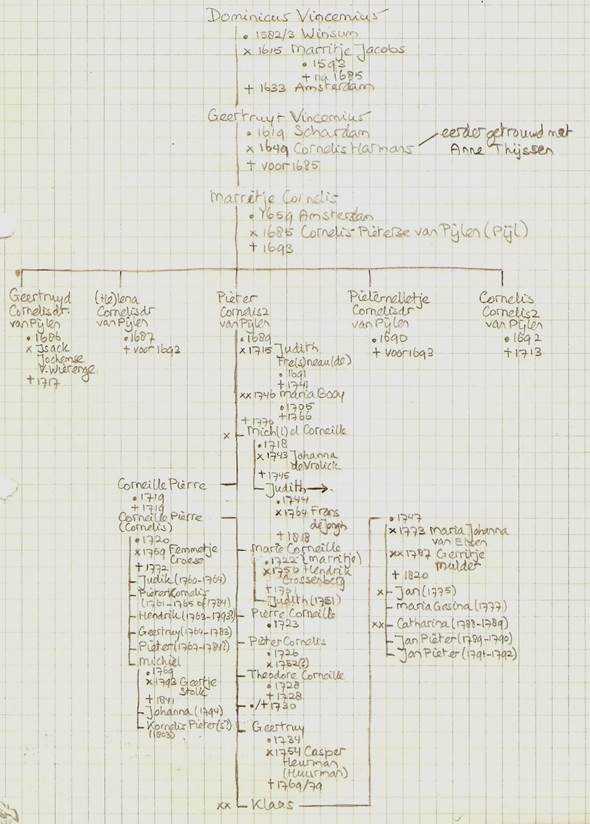 Dominicus Vincemius
• 1582/3 Winsum
x 1615 Marritje Jacobs
• 1593
+ na 1685
+ 1633 Amsterdam
Geertruyt Vincemius
• 1619 Schardam
x 1649 Cornelis Harmans
+ voor 1685
eerder getrouwd met
Anne Thijssen
Marretje Cornelis
• 1659 Amsterdam
x 1685 Cornelis Pieterse van Pijlen (Pijl)
+ 1693
Geertruyd
Cornelisdr.
van Pijlen
• 1686
x Isack
Jochemse
v. Wierenge
+ 1717
(He)lena
Cornelisdr
van Pijlen
• 1687
+ voor 1693
Pieter
Cornelisz
van Pijlen
• 1689
x 1715 Judith
Fre(s)neau(de)
• 1691
+ 1741
xx 1746 Maria Gooy
• 1705
+ 1766
+ 1770
Pieternelletje
Cornelisdr
van Pijlen
• 1690
+ voor 1693
Cornelis
Cornelisz
van Pijlen
• 1692
+ 1713
x
Mich(i)el Corneille
• 1718
x 1743 Johanna
de Vrolick
+ 1745
Judith →
• 1744
x 1764 Frans
de Jongh
+ 1818
Corneille Pierre
• 1719
+ 1719
Corneille Pierre
(Cornelis)
• 1720
x 1759 Femmetje
Croese
+ 1772
Judik (1760-1764)
Pieter Cornelis
(1761-1765 of 1784)
Hendrik (1763-1793)
Geertruy (1764-1783)
Pieter (1767-1784)
Michiel
• 1769
x 1793 Geertje
Stolk
+ 1841
Johanna (1794)
Kornelis Pieter(s?)
(1803)
Marie Corneille
• 1722 (Marritje)
x 1750 Hendrik
Gossenberg
+ 1751
Judith (1751)
Pierre Corneille
• 1723
Pieter Cornelis
• 1726
x 1752(?)
Theodore Corneille
• 1728
+ 1728
•/+ 1730
Geertruy
• 1734
x 1754 Casper
Heurman
(Huurman)
+ 1769/79
xx
Klaas
• 1747
x 1773 Maria Johanna
van Ehten
xx 1787 Gerritje
Mulder
+ 1820
x Jan (1775)
Maria Gesina (1777)
xx Catharina (1788-1789)
Jan Pieter (1789-1790)
Jan Pieter (1791-1792)